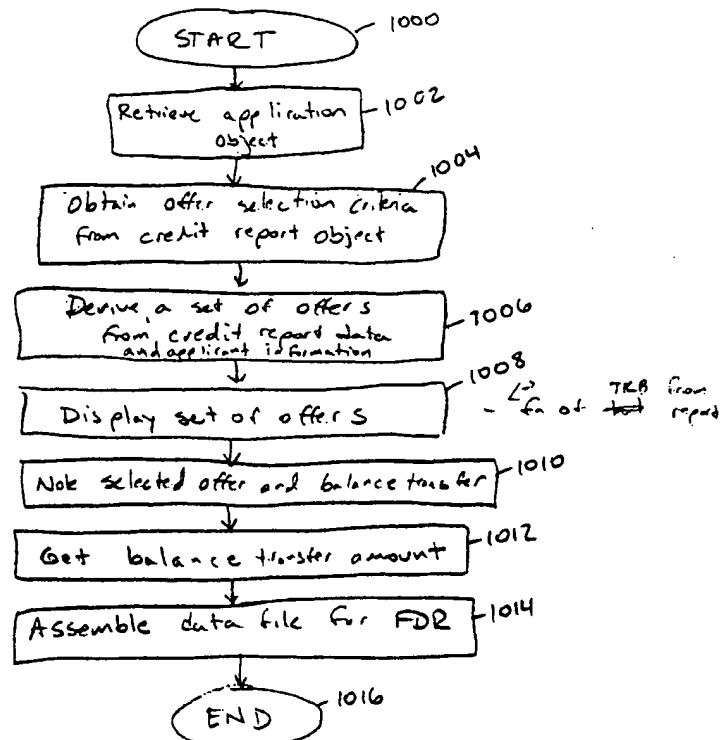 START
1000
Retrieve application
object
1002
Obtain offer selection criteria
from credit report object
1004
Derive a set of offers
from credit report data
and applicant information
1006
Display set of offers
1008
fn of TRB from
report
Note selected offer and balance transfer
1010
Get balance transfer amount
1012
Assemble data file for FDR
1014
END
1016